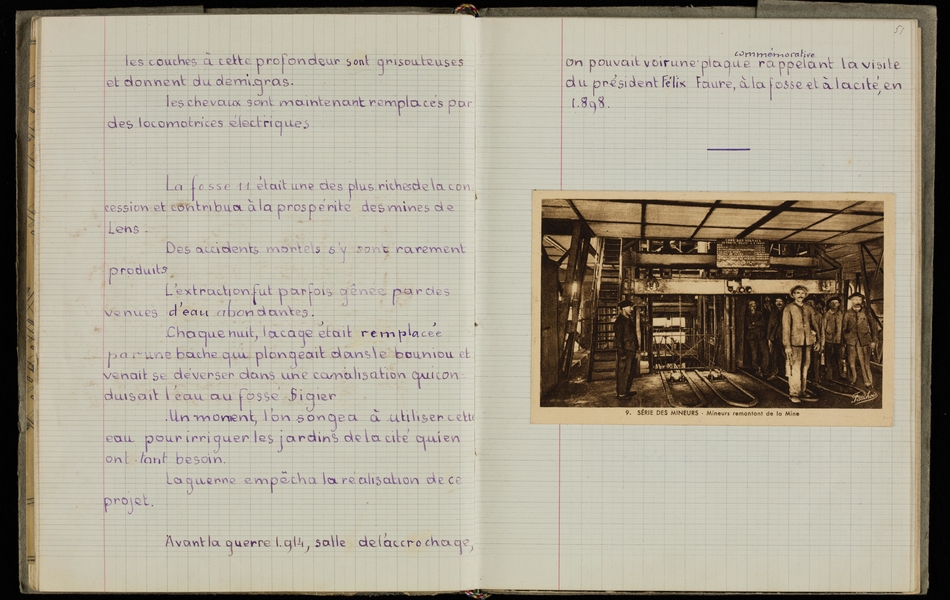 les couches à cette profondeur sont grisouteuses
et donnent du demi.gras.
les chevaux sont maintenant remplacés par
des locomotrices électriques
La fosse 11 était une des plus riches de la con
cession et contribua à la prospérité des mines de
Lens.
Des accidents mortels s'y sont rarement
produits
L'extraction fut parfois gênée par des
venues d'eau abondantes.
Chaque nuit, la cage était remplacée
par une bâche qui plongeait dans le bouniou et
venait se déverser dans une canalisation qui con
duisait l'eau au fossé
Un moment, l'on songea à utiliser cette
eau pour irriguer les jardins de la cité qui en
ont tant besoin.
La guerre empêcha la réalisation de ce
projet.
Avant la guerre 1.914, salle de l'accrochage,
51
commémorative
on pouvait voir une plaque rappelant la visite
du président Félix Faure, à la fosse et à la cité, en
1.898.
9. SÉRIE DES MINEURS - Mineurs remontant de la Mine